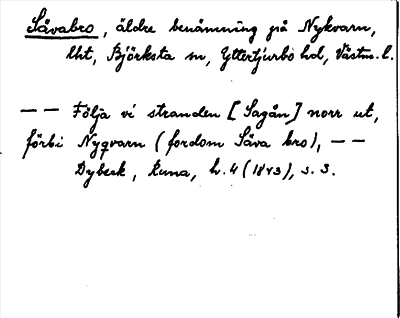 Såvabro, äldre benämning på Nykvarn,
lht, Björksta sn, Yttertjurbo hd, Västm. l.
— — Följa vi stranden [Sagån] norr ut,
förbi Nyqvarn (fordom Såva bro), — —
Dybeck, Runa, h. 4 (1843), s. 3.